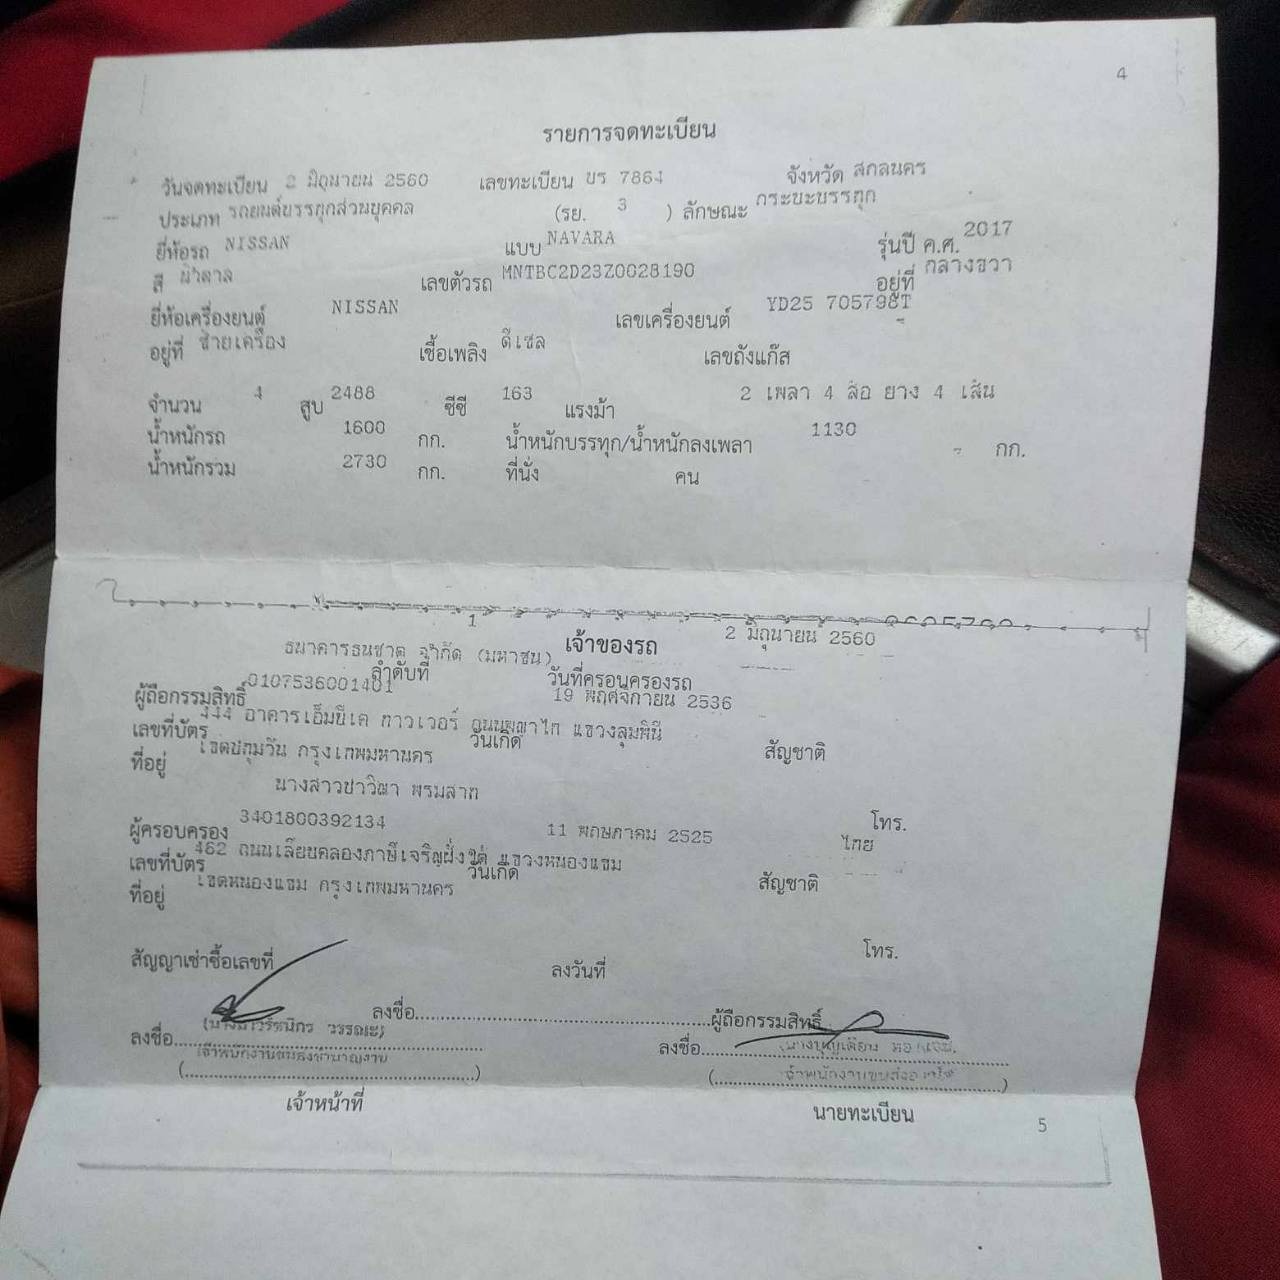 4
รายการจดทะเบียน
วันจดทะเบียน 2 มิถุนายน 2560 เลขทะเบียน บร 7864 จังหวัด สกลนคร
ประเภท รถยนต์บรรทุกส่วนบุคคล (รย. 3 ) ลักษณะ กระบะบรรทุก
ยี่ห้อรถ NISSAN แบบ NAVARA รุ่นปี ค.ศ. 2017
สี น้ำตาล เลขตัวรถ MNTBC2D23Z0028190 อยู่ที่ กลางขวา
ยี่ห้อเครื่องยนต์ NISSAN เลขเครื่องยนต์ YD25 705798T
อยู่ที่ ซ้ายเครื่อง เชื้อเพลิง ดีเซล เลขถังแก๊ส -
จำนวน 4 สูบ 2488 ซีซี 163 แรงม้า 2 เพลา 4 ล้อ ยาง 4 เส้น
น้ำหนักรถ 1600 กก. น้ำหนักบรรทุก/น้ำหนักลงเพลา 1130 - กก.
น้ำหนักรวม 2730 กก. ที่นั่ง คน
1 เจ้าของรถ 2 มิถุนายน 2560
ธนาคารธนชาต จำกัด (มหาชน)
ลำดับที่ วันที่ครอบครองรถ
ผู้ถือกรรมสิทธิ์ 0107536001401 19 พฤศจิกายน 2536
เลขที่บัตร 444 อาคารเอ็มบีเค ทาวเวอร์ ถนนพญาไท แขวงลุมพินี วันเกิด สัญชาติ
ที่อยู่ เขตปทุมวัน กรุงเทพมหานคร
นางสาวชาวิณา พรมสาท
โทร.
ผู้ครอบครอง 3401800392134 11 พฤษภาคม 2525 ไทย
เลขที่บัตร 462 ถนนเลียบคลองภาษีเจริญฝั่งใต้ แขวงหนองแขม วันเกิด สัญชาติ
ที่อยู่ เขตหนองแขม กรุงเทพมหานคร
โทร.
สัญญาเช่าซื้อเลขที่ ลงวันที่
ลงชื่อ ผู้ถือกรรมสิทธิ์
ลงชื่อ วรรณะ) ลงชื่อ
เจ้าหน้าที่ นายทะเบียน
5